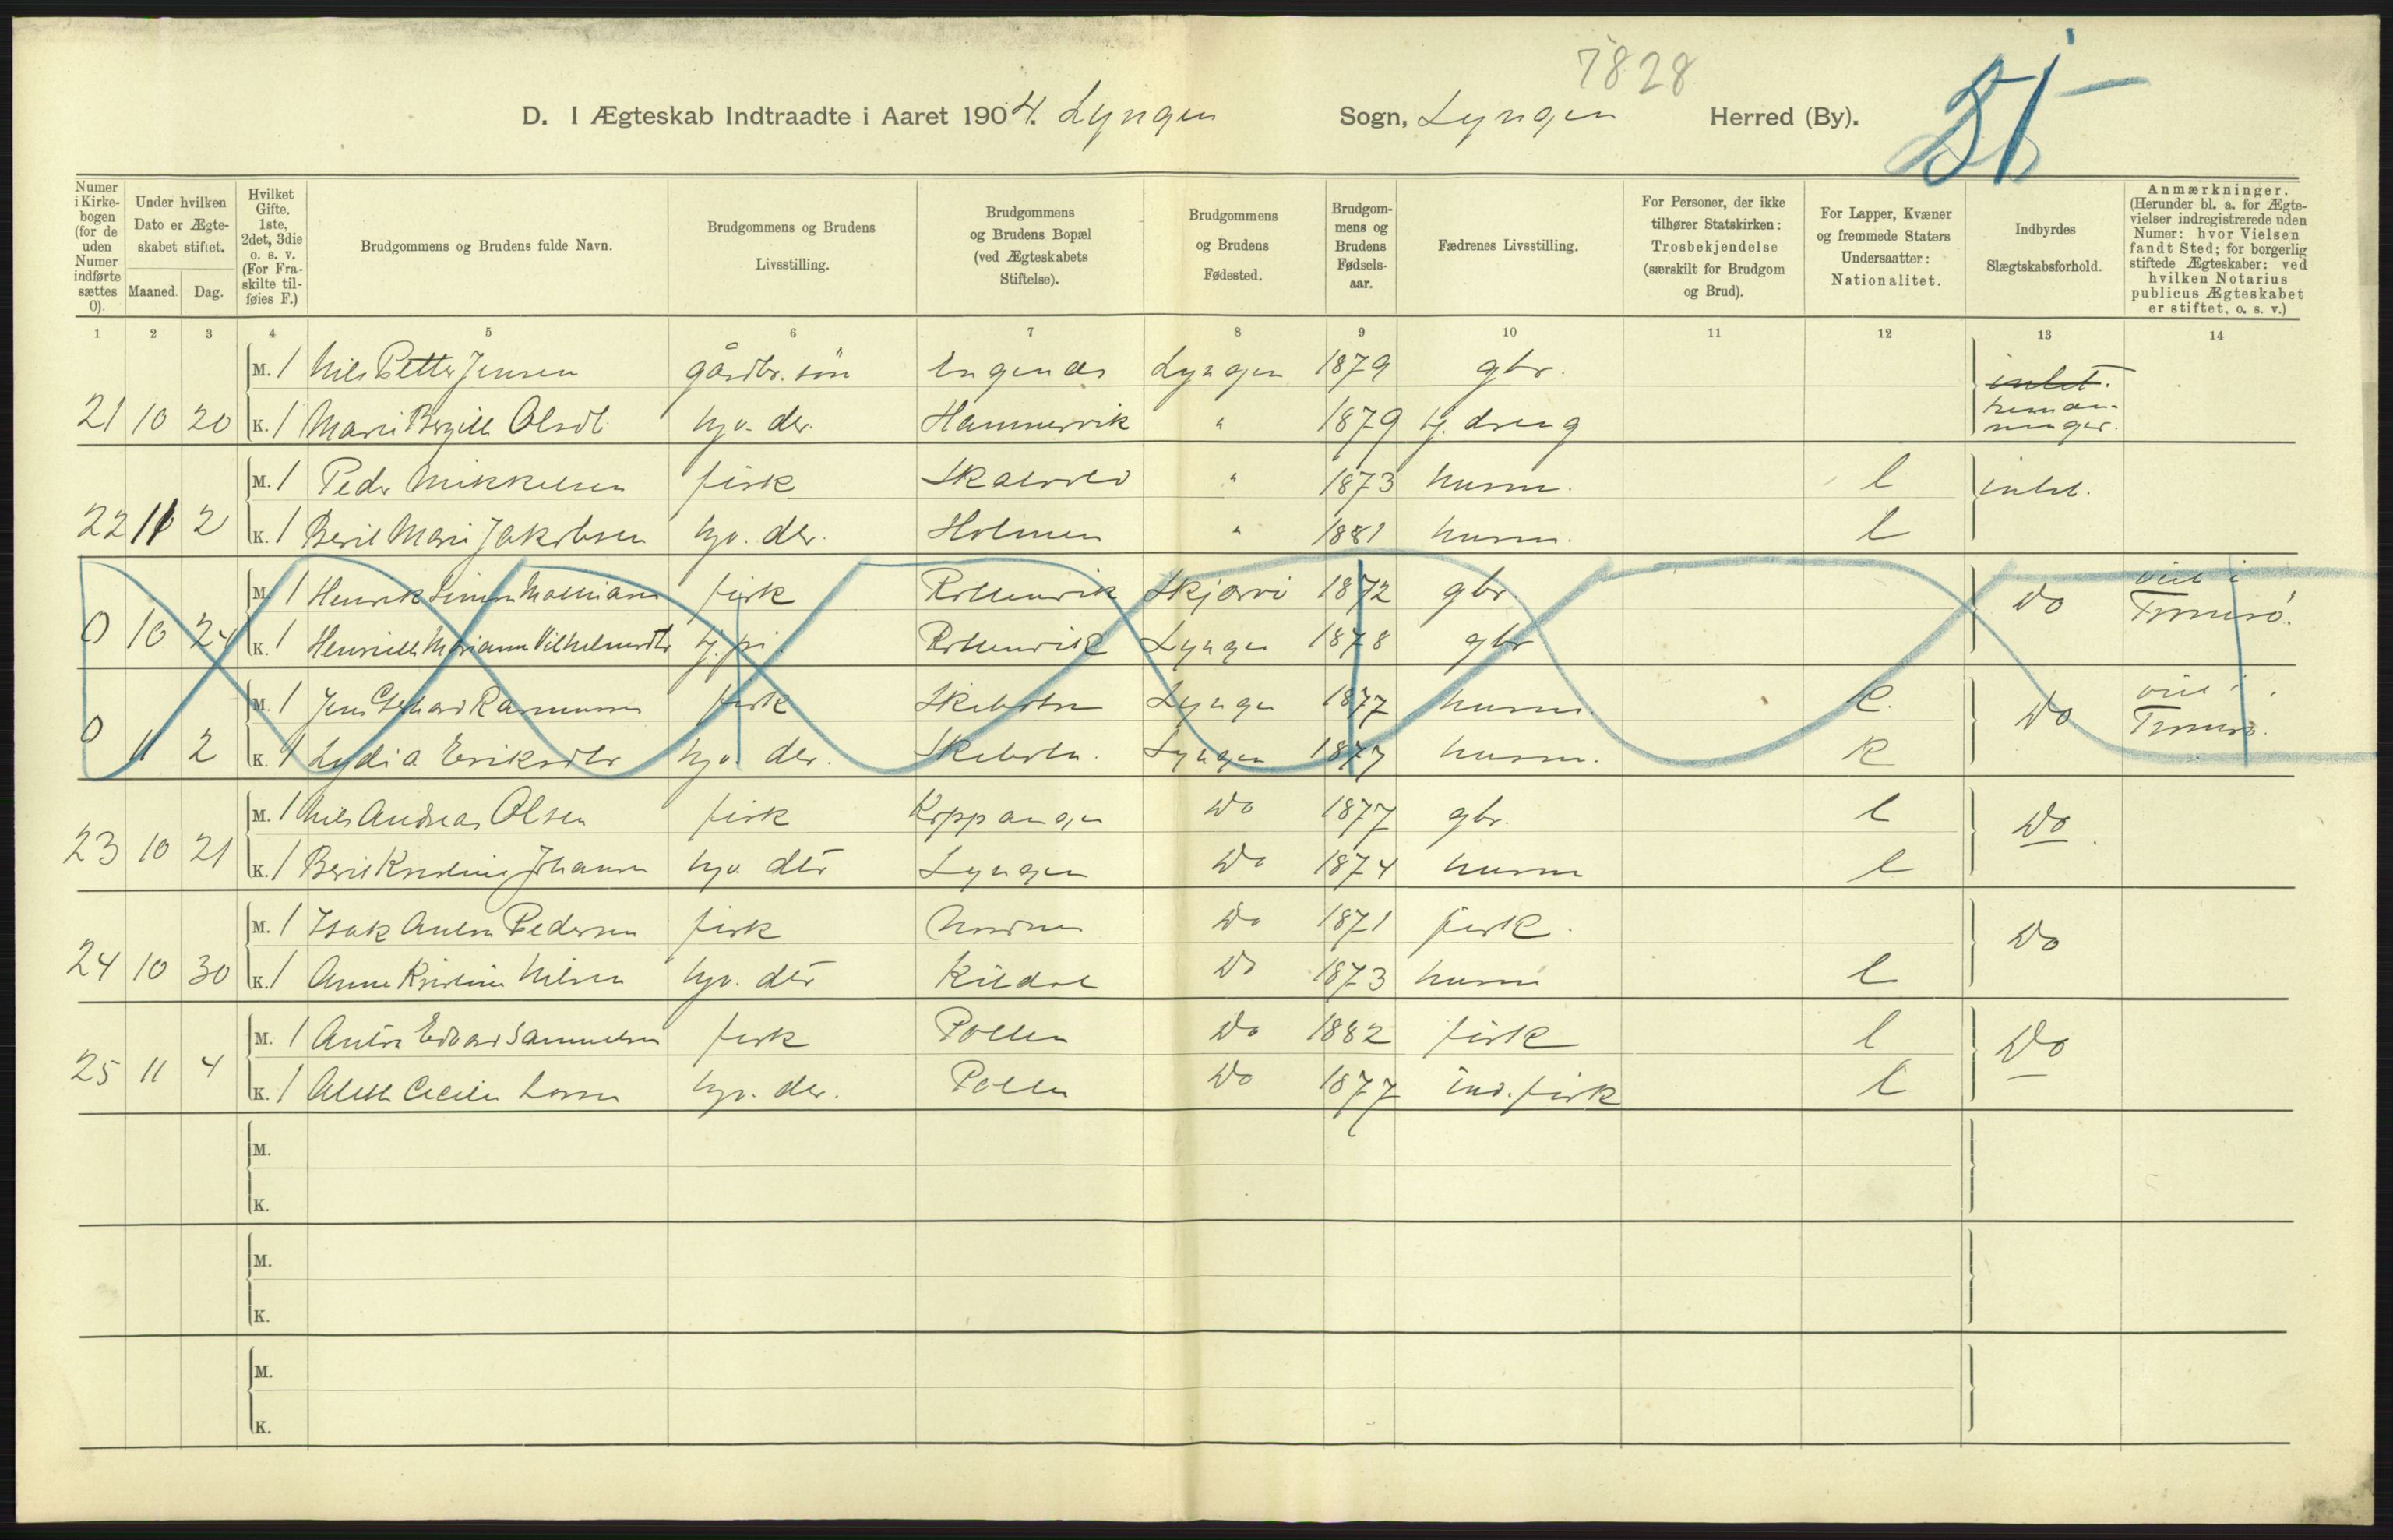 7828
D. I Ægteskab Indtraadte i Aaret 1904. Lyngen Sogn, Lyngen Herred (By).
Numer i Kirkebogen (for de uden Numer indførte sættes 0).
Under hvilken Dato er Ægteskabet stiftet.
Maaned. Dag.
Hvilket Gifte. 1ste, 2det, 3die o. s. v. (For Fraskilte tilføies F.)
Brudgommens og Brudens fulde Navn.
Brudgommens og Brudens Livsstilling.
Brudgommens og Brudens Bopæl (ved Ægteskabets Stiftelse).
Brudgommens og Brudens Fødested.
Brudgommens og Brudens Fødselsaar.
Fædrenes Livsstilling.
For Personer, der ikke tilhører Statskirken: Trosbekjendelse (særskilt for Brudgom og Brud).
For Lapper, Kvæner og fremmede Staters Undersaatter: Nationalitet.
Indbyrdes Slægtskabsforhold.
Anmærkninger. (Herunder bl. a. for Ægtevielser indregistrerede uden Numer: hvor Vielsen fandt Sted; for borgerlig stiftede Ægteskaber: ved hvilken Notarius publicus Ægteskabet er stiftet, o. s. v.)
1 2 3 4 5 6 7 8 9 10 11 12 13 14
M. 1 Nils Petter Jensen gårdbr. søn Lyngen 1879 gbr. intet.
21 10 20 K. 1 Olsdt Hammervik " 1879 tj. dreng
M. 1 Peder Mikkelsen fisk " 1873 husm. l intet.
22 11 2 K. 1 Berit Mari Jakobsen hjv. dtr. Holmen " 1881 husm. l
M. 1 Henrik fisk Rottenvik Skjærvø 1872 gbr. Do viet i
0 10 24 K. 1 Vilhelmsdtr tj. pi. Rottenvik Lyngen 1878 gbr Tromsø.
M. 1 Jens Rasmussen fisk Skibotn Lyngen 1877 husm. k. Do viet i
0 11 2 K. 1 Lydia Eriksdtr hjv. dtr. Skibotn. Lyngen 1877 husm. k Tromsø.
M. 1 Nils Andreas Olsen fisk Koppangen Do 1877 gbr. l Do.
23 10 21 K. 1 Berit Johansen hjv. dtr Lyngen Do 1874 husm l
M. 1 Isak Anton Pedersen fisk Do 1871 fisk. Do
24 10 30 K. 1 Anne Kristine Nilsen hjv. dtr Kildal Do 1873 husm l
M. 1 Anton Edvard Samuelsen fisk Pollen Do 1882 fisk l Do
25 11 4 K. 1 hjv. dtr. Pollen Do 1877 ind. fisk l
M.
K.
M.
K.
M.
K.